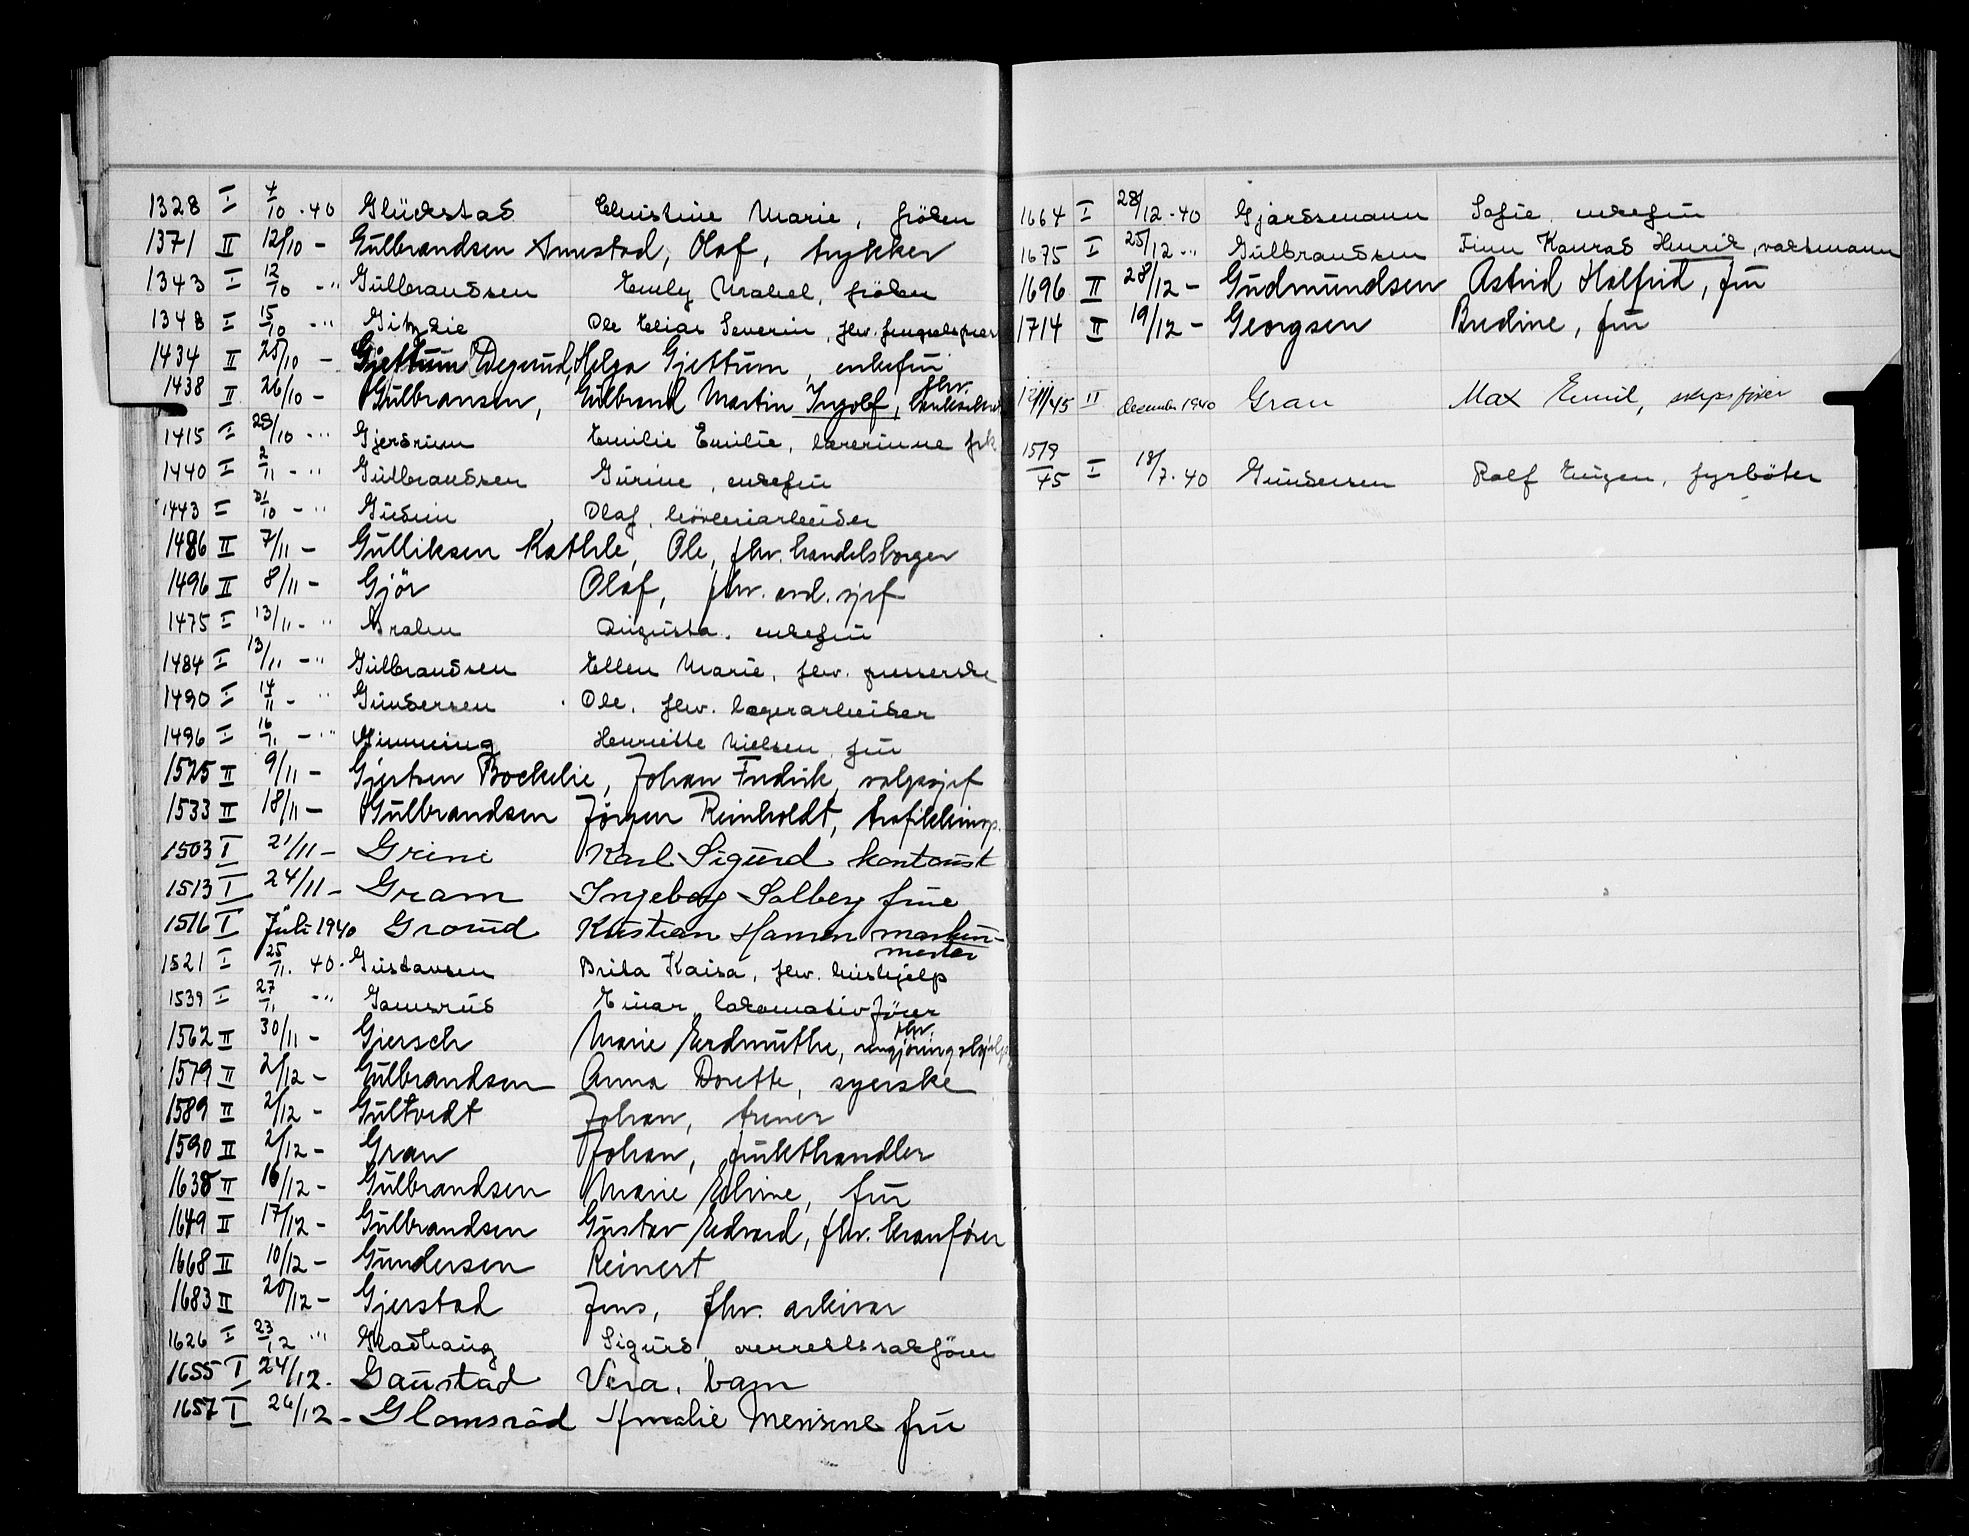 1328 I 4/10 - 40 Glückstad Christine Marie, fröken
1371 II 12/10 - Gulbrandsen Annestad, Olaf, trykker
1343 I 12/10 - " Gulbrandsen Emly Mabel, fröken
1348 I 15/10 - " Ole Elias Severin, fhv.
1434 II 25/10 - Gjettum Degerud, Helga Gjettum, enkefru
1438 II 26/10 - Gulbransen, Gulbrand Martin Ingolf, fhv.
1415 I 29/10 - " Gjersrum Emilie Emilie, lærerinne frk
1440 I 2/11 - " Gulbrandsen Gurine, enkefru
1443 I 31/10 - " Gusrun Olaf,
1486 II 7/11 - Gulliksen Kathle, Ole, fhv. handelsborger
1496 II 8/11 - Gjör Olaf, fhv. avd. sjef
1475 I 13/11 - " Augusta, enkefru
1484 I 13/11 - " Gulbrandsen Ellen Marie, fhv. presserske
1490 I 14/11 - " Gundersen Ole, fhv. lagerarbeider
1496 I 16/11 - " Ginning Henriette Nielsen, fru
1525 II 9/11 - Gjertsen Bockelie, Johan Fredrik, salgssjef
1533 II 18/11 - Gulbrandsen Jørgen Reinholdt, trafikkinsp.
1503 I 21/11 - Grini Karl Sigurd kontorist
1513 I 24/11 - Gram Ingeborg Solberg frue
1516 I Juli 1940 Grorud Kristian Hansen maskin-
mester
1521 I 25/11. 40. Gustavsen Brita Kaisa, fhv. hushjelp
1539 I 27/11 - " Gamsrud Einar, lokomotivförer
1562 II 30/11 - Giersch Marie Erdmuthe, fhv. rengjøringshjelp
1579 II 2/12 - Gulbrandsen Anna Dorette, syerske
1589 II 2/12 - Gultvedt Johan, trener
1590 II 2/12 - Gran Johan, frukthandler
1638 II 16/12 - Gulbrandsen Marie Elvine, fru
1649 II 17/12 - Gulbrandsen Gustav Edvard, fhv. kranfører
1668 II 10/12 - Gundersen Reinert
1683 II 20/12 - Gjerstad Jens, fhv. arkivar
1626 I 23/12 " Gladhaug Sigurd overrettssakförer
1655 I 24/12. Gaustad Vera, barn
1657 I 26/12 - Glomsröd Amalie Mensine fru
1664 I 28/12 - 40 Gjardsmann Sofie enkefru
1675 I 25/12 - " Gulbrandsen Finn Konrad Henrik, vaktmann
1696 II 28/12 - Gudmundsen Astrid Halfrid, fru
1714 II 19/12 - Georgsen Bredine, fru
/45 II december 1940 Gran Max Emil, skipsfører
1519/45 I 18/7. 40 Gundersen Rolf Eugen, fyrböter